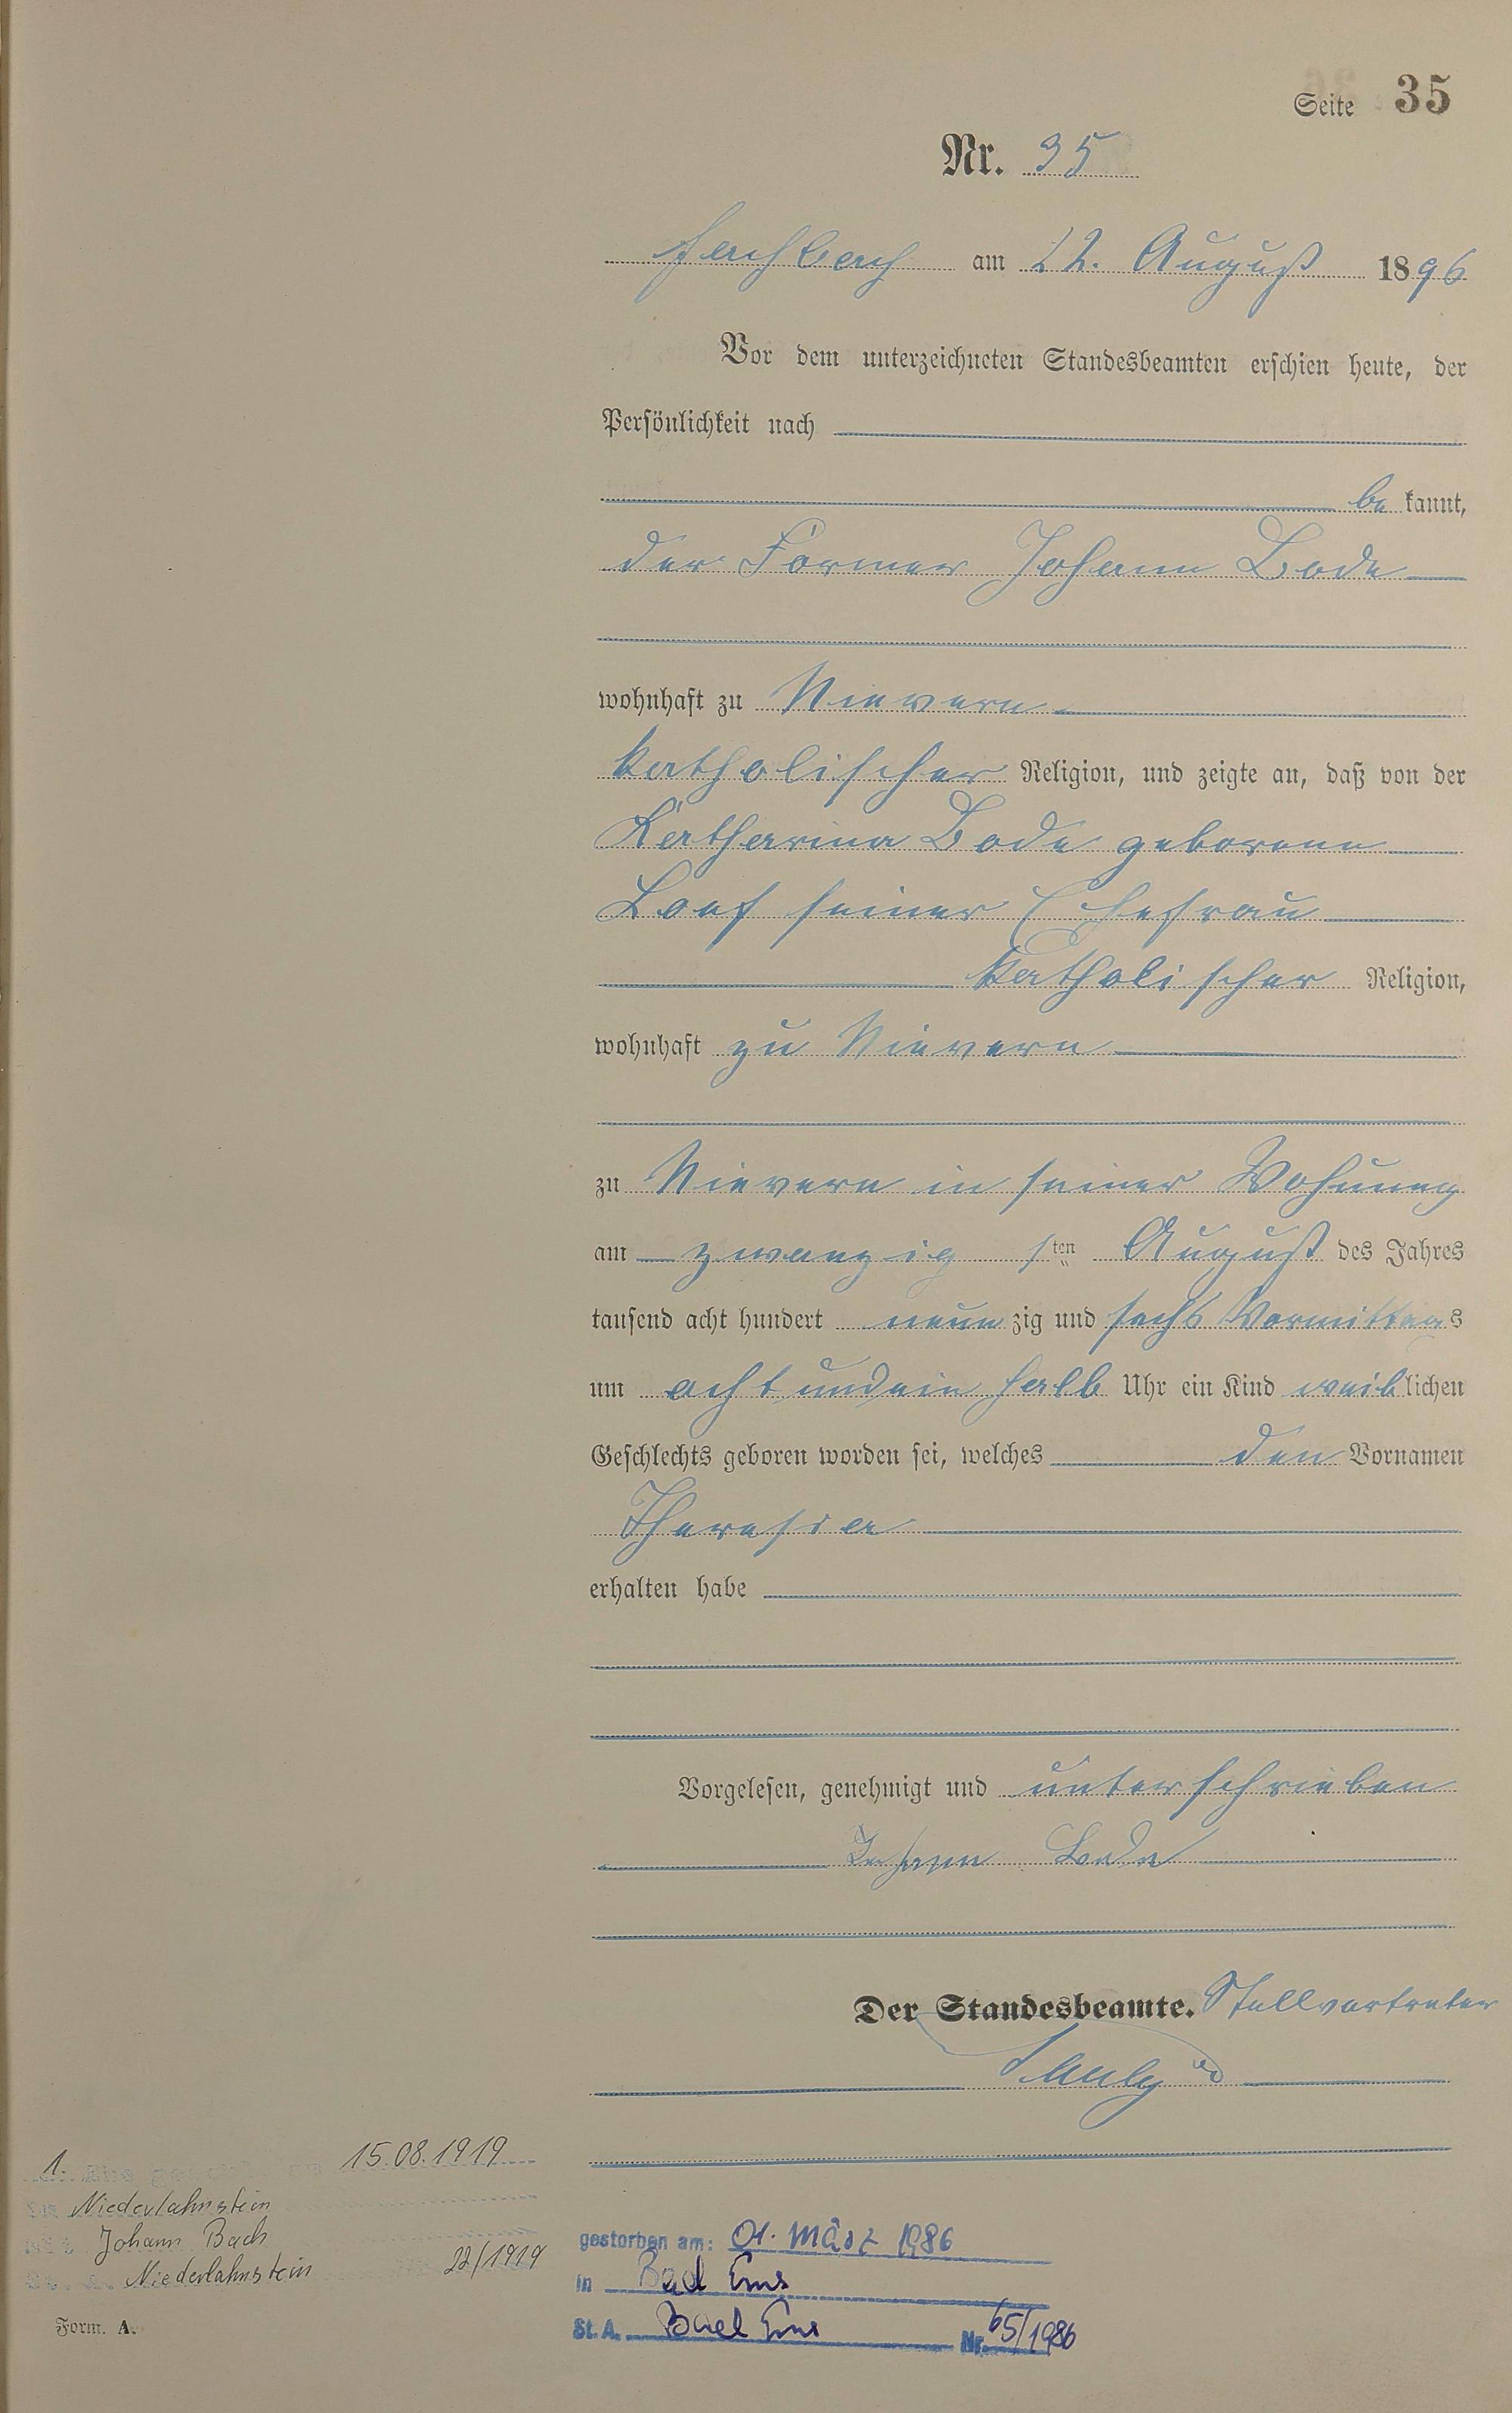 Seite 35
Nr. 35
Fachbach am 22. August 1896
Vor dem unterzeichneten Standesbeamten erschien heute, der
Persönlichkeit nach
be kannt,
der Former Johann Bode
wohnhaft zu Nievern
katholischer Religion, und zeigte an, daß von der
Katharina Bode geborene
seiner Ehefrau
katholischer Religion,
wohnhaft zu Nievern
zu Nievern in seiner Wohnung
am zwanzigsten August des Jahres
tausend acht hundert neunzig und sechs Vormittags
um acht und ein halb Uhr ein Kind weiblichen
Geschlechts geboren worden sei, welches den Vornamen
Theresia
erhalten habe
Vorgelesen, genehmigt und unterschrieben
Johann Bode
Der Standesbeamte. Stellvertreter
1. Ehe 15.08.1919
Niederlahnstein
Johann Bach
Niederlahnstein 22/1919
gestorben am: 01. März 1986
in Bad Ems
St. A. Bad Ems Nr. 65/1986
Form. A.